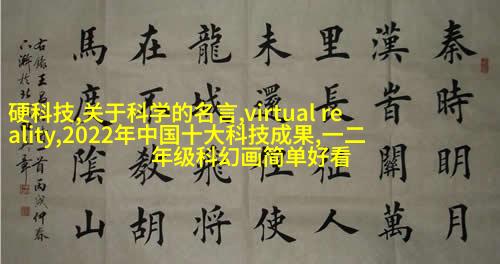 硬科技,关于科学的名言,virtual re
ality,2022年中国十大科技成果,一二
年级科幻画简单好看
秦時明月
漢旹關萬
里長征人
未還但使
龍城飛將
在不教胡
馬度陰山
右錄王昌
首丙戌仲春